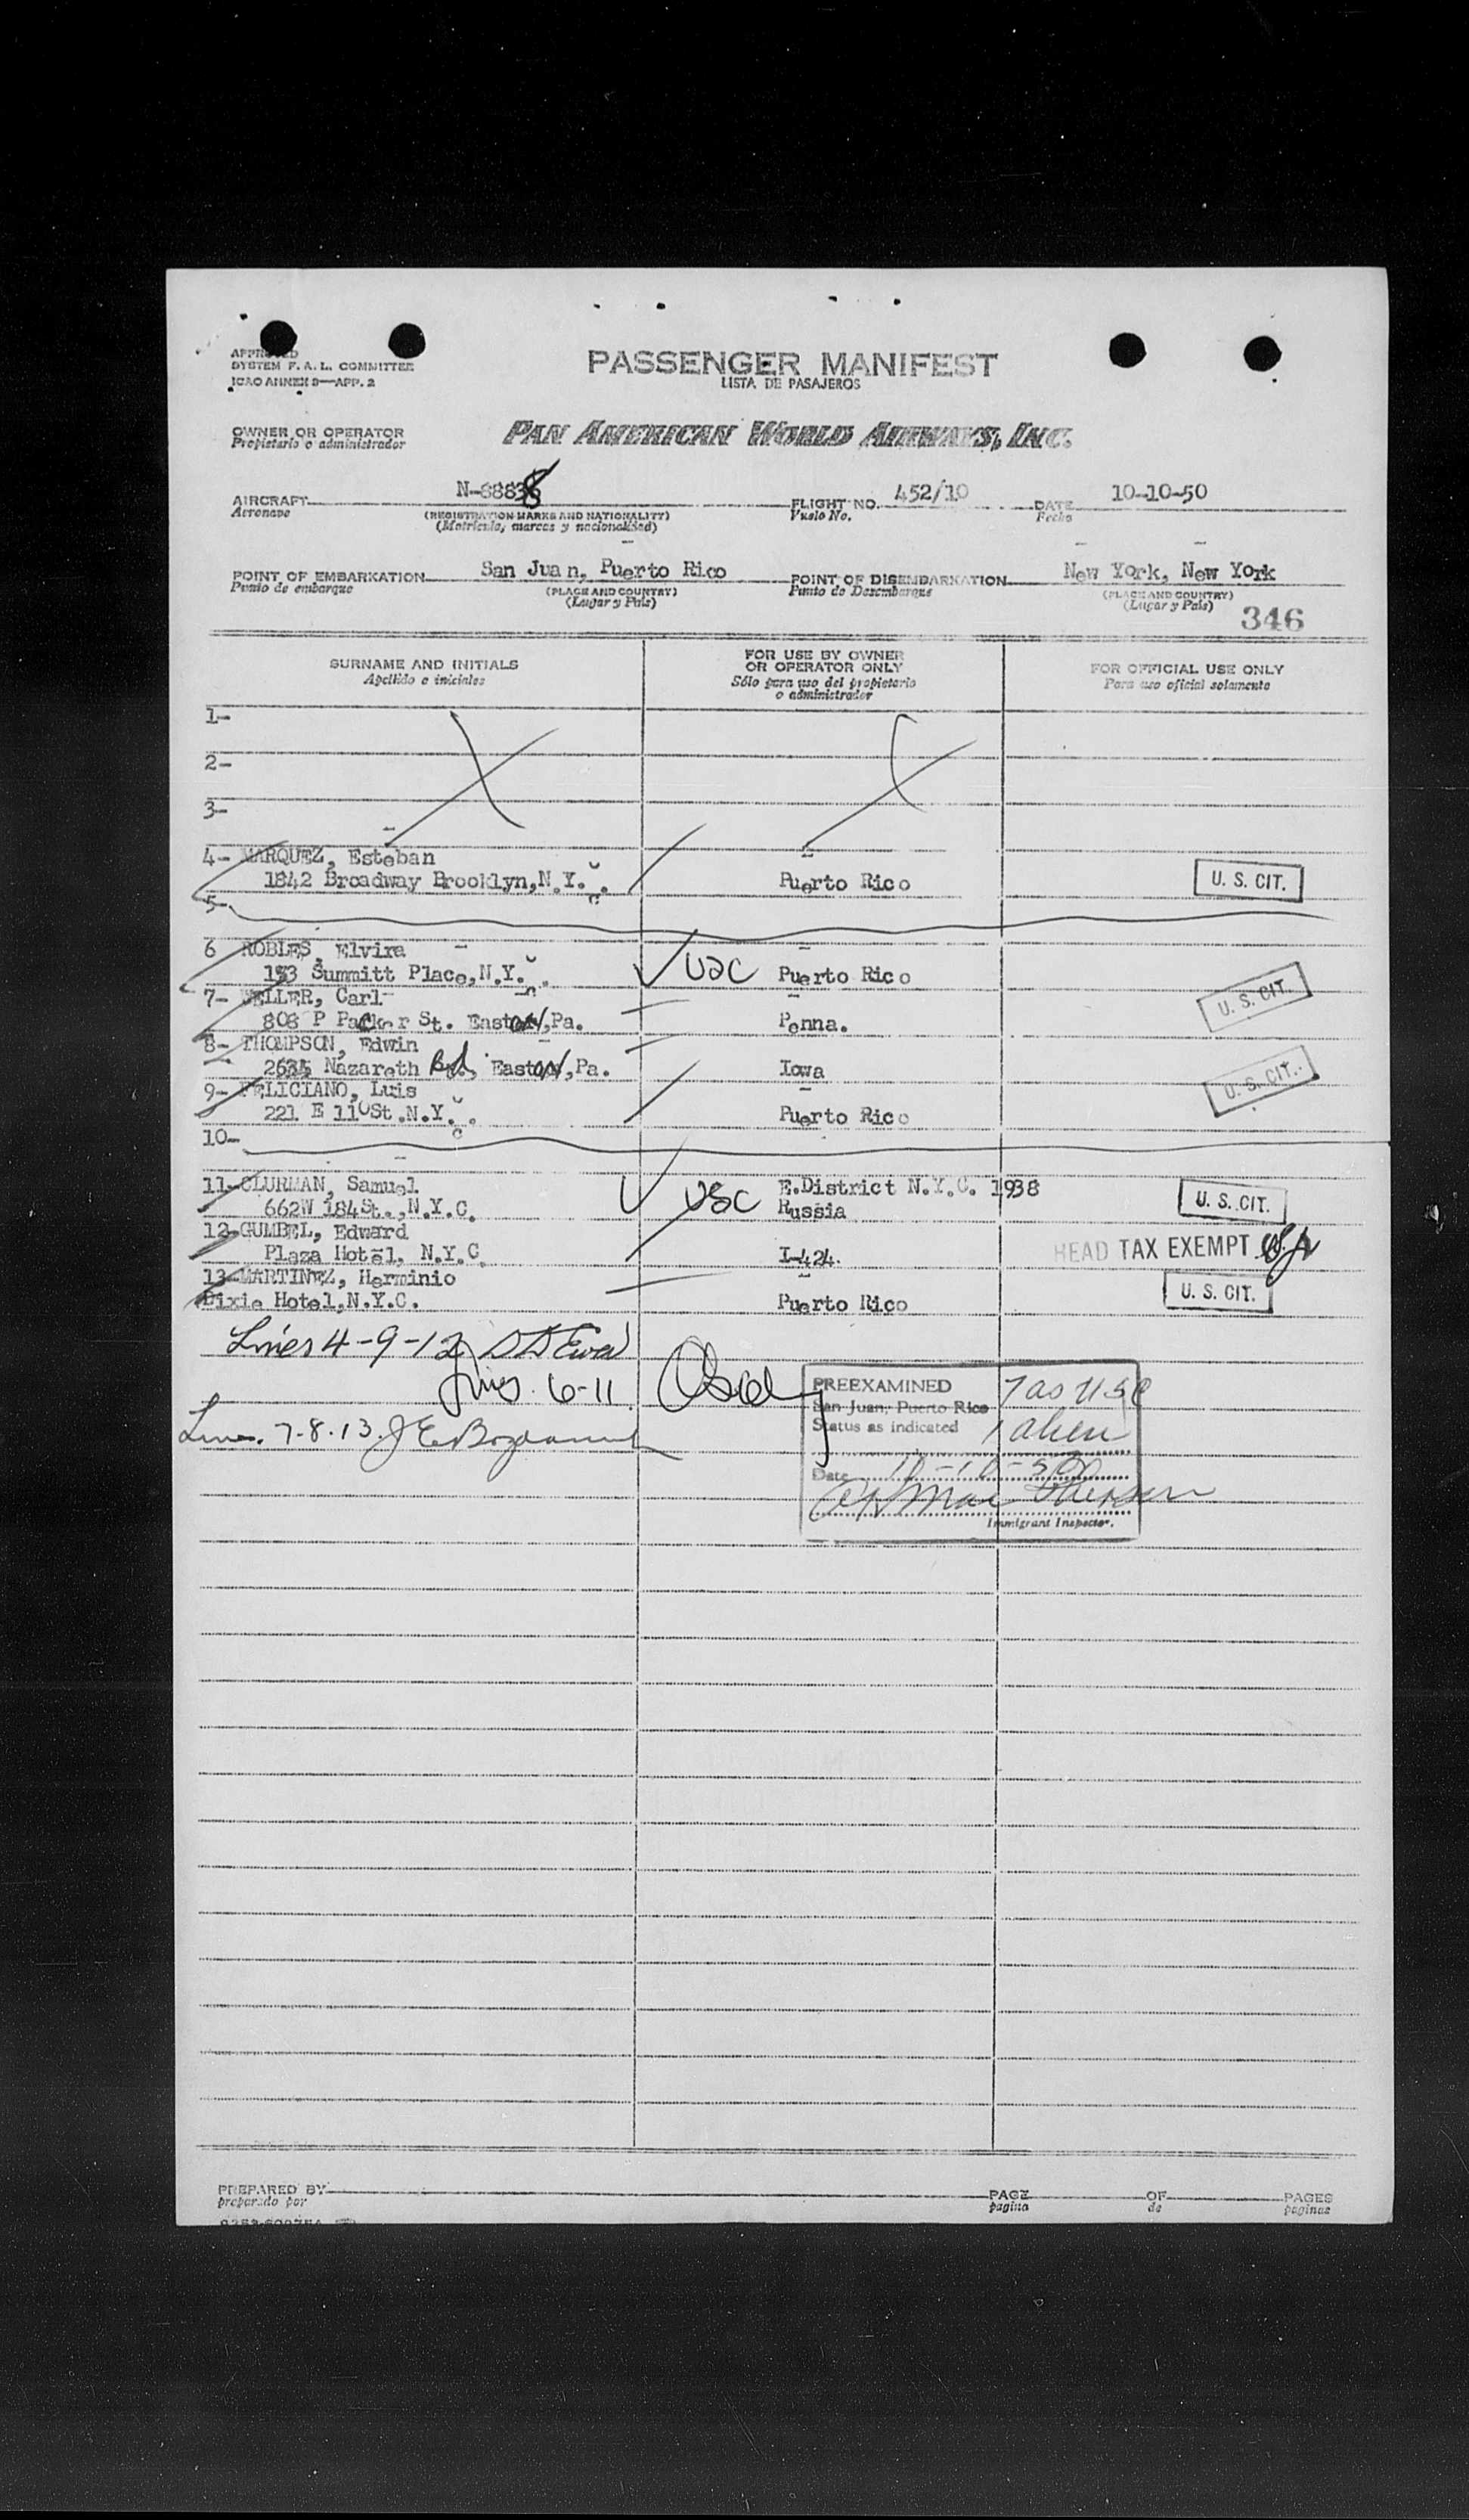 APPROVED
SYSTEM F. A. L. COMMITTEE
ICAO ANNEX 9—APP. 2
PASSENGER MANIFEST
LISTA DE PASAJEROS
OWNER OR OPERATOR
Propietario o administrador
PAN AMERICAN WORLD AIRWAYS, INC.
AIRCRAFT N-88838 FLIGHT NO. 452/10 DATE 10-10-50
Aeronave (REGISTRATION MARKS AND NATIONALITY) Vuelo No. Fecha
(Matrícula, marcas y nacionalidad)
POINT OF EMBARKATION San Juan, Puerto Rico POINT OF DISEMBARKATION New York, New York
Punto de embarque (PLACE AND COUNTRY) Punto de Desembarque (PLACE AND COUNTRY)
(Lugar y País) (Lugar y País) 346
SURNAME AND INITIALS FOR USE BY OWNER OR OPERATOR ONLY FOR OFFICIAL USE ONLY
Apellido e iniciales Sólo para uso del propietario o administrador Para uso oficial solamente
1-
2-
3-
4- MARQUEZ, Esteban
1842 Broadway Brooklyn,N.Y.C. Puerto Rico U. S. CIT.
5-
6 ROBLES, Elvira
Summitt Place,N.Y.C. USC Puerto Rico
7- Carl U. S. CIT.
808 P Packer St. Easton,Pa. Penna.
8- THOMPSON, Edwin
Nazareth Rd. Easton,Pa. Iowa U. S. CIT.
9- FELICIANO, Luis
221 E 110St.N.Y.C. Puerto Rico
10-
11- CLURMAN, Samuel E.District N.Y.C. 1938
662W 184St.,N.Y.C. USC Russia U. S. CIT.
12-GUMBEL, Edward
Plaza Hotel, N.Y.C. I-424. HEAD TAX EXEMPT
13-MARTINEZ, Herminio U. S. CIT.
Dixie Hotel,N.Y.C. Puerto Rico
Lines 4-9-12
Lines. 6-11
Lines. 7-8-13
PREEXAMINED 7 as USC
San Juan, Puerto Rico
Status as indicated 1 alien
Date 10-10-50
Immigrant Inspector.
PREPARED BY PAGE OF PAGES
preparado por pagina de paginas